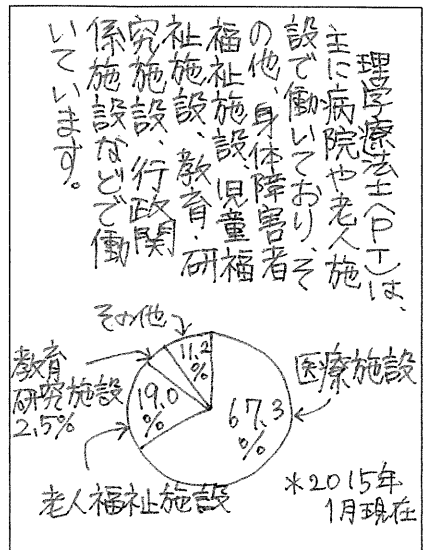 理学療法士(PT)は、
主に病院や老人施
設で働いており、そ
の他、身体障害者
福祉施設、児童福
祉施設、教育・研
究施設、行政関
係施設などで働
いています。
その他
11.2
%
教育
研究施設
2.5%
19.0
%
67.3
%
医療施設
老人福祉施設
*2015年
1月現在